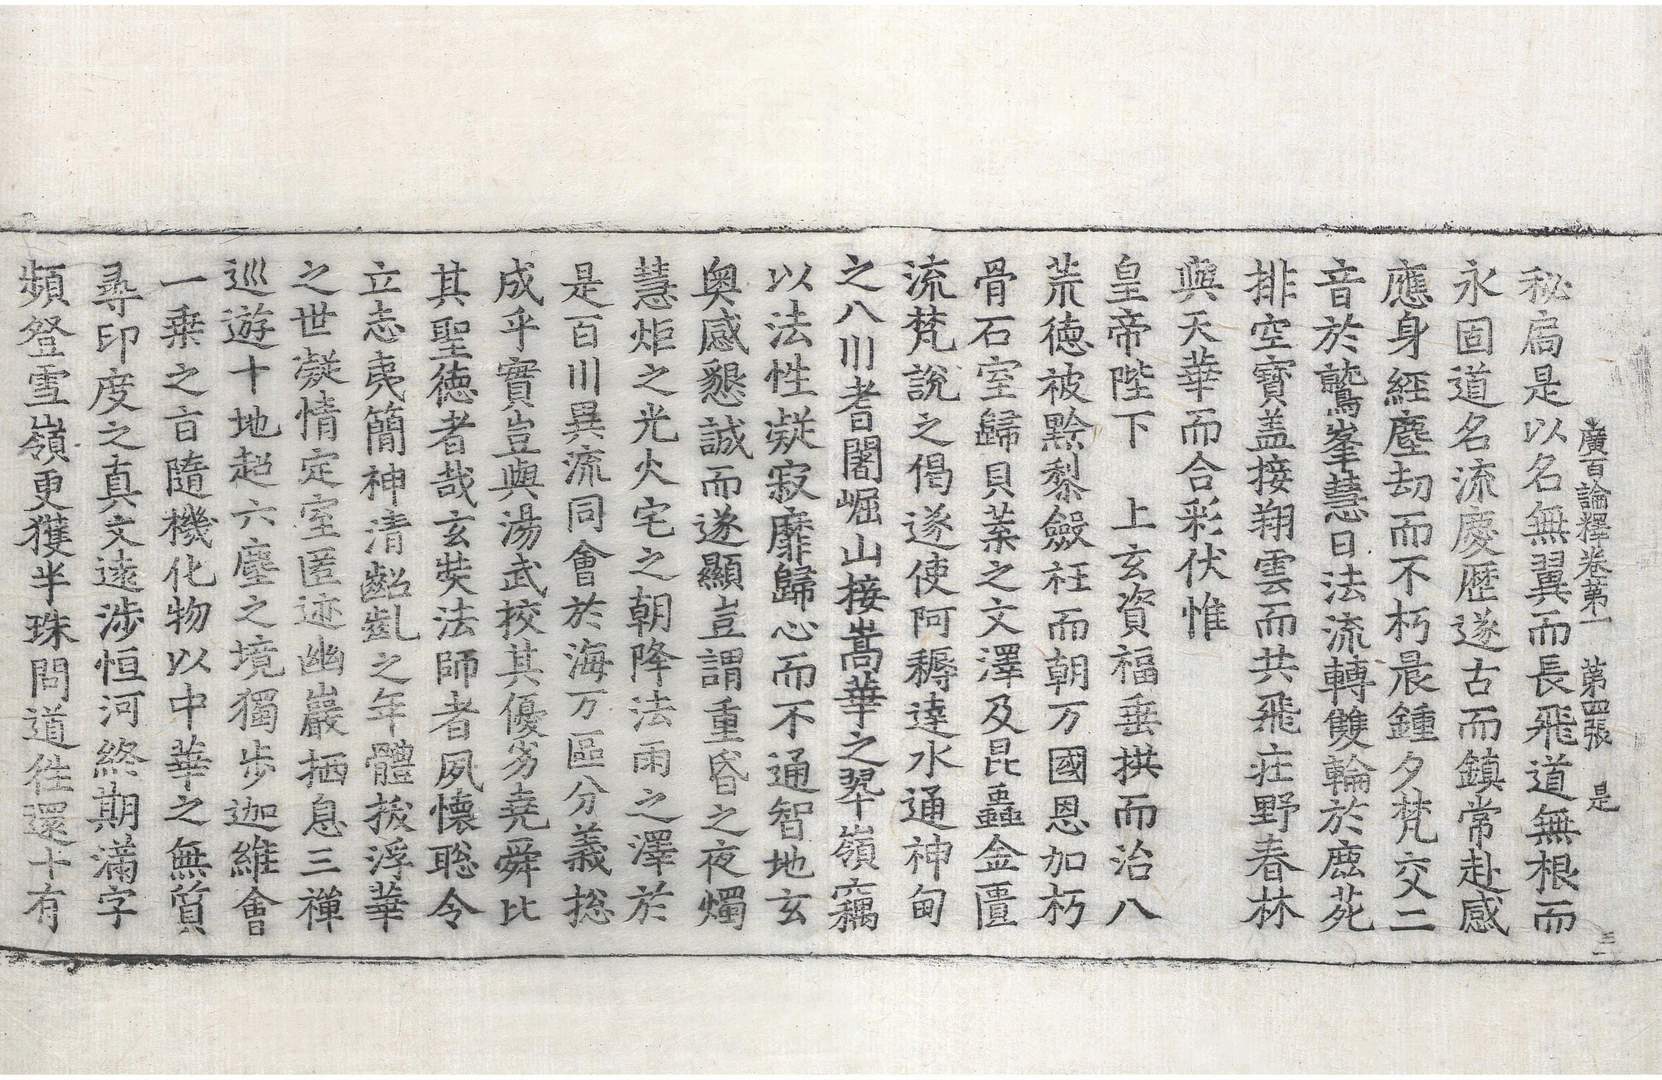 廣百論釋卷第一　第四張　是
秘扃是以名無翼而長飛道無根而
永固道名流慶歷遂古而鎮常赴感
應身經塵劫而不朽晨鍾夕梵交二
音於鷲峯慧日法流轉雙輪於鹿苑
排空寶盖接翔雲而共飛莊野春林
與天華而合彩伏惟
皇帝陛下　上玄資福垂拱而治八
荒德被黔黎斂衽而朝万國恩加朽
骨石室歸貝葉之文澤及昆蟲金匱
流梵說之偈遂使阿耨達水通神甸
之八川耆闍崛山接嵩華之翠嶺竊
以法性凝寂靡歸心而不通智地玄
奧感懇誠而遂顯豈謂重昏之夜燭
慧炬之光火宅之朝降法雨之澤於
是百川異流同會於海万區分義揔
成乎實豈與湯武校其優劣堯舜比
其聖德者哉玄奘法師者夙懷聡令
立志夷簡神清齠齓之年體拔浮華
之世凝情定室匿迹幽巖栖息三禪
巡遊十地超六塵之境獨步迦維會
一乗之旨隨機化物以中華之無質
尋印度之真文遠涉恒河終期滿字
頻登雪嶺更獲半珠問道往還十有